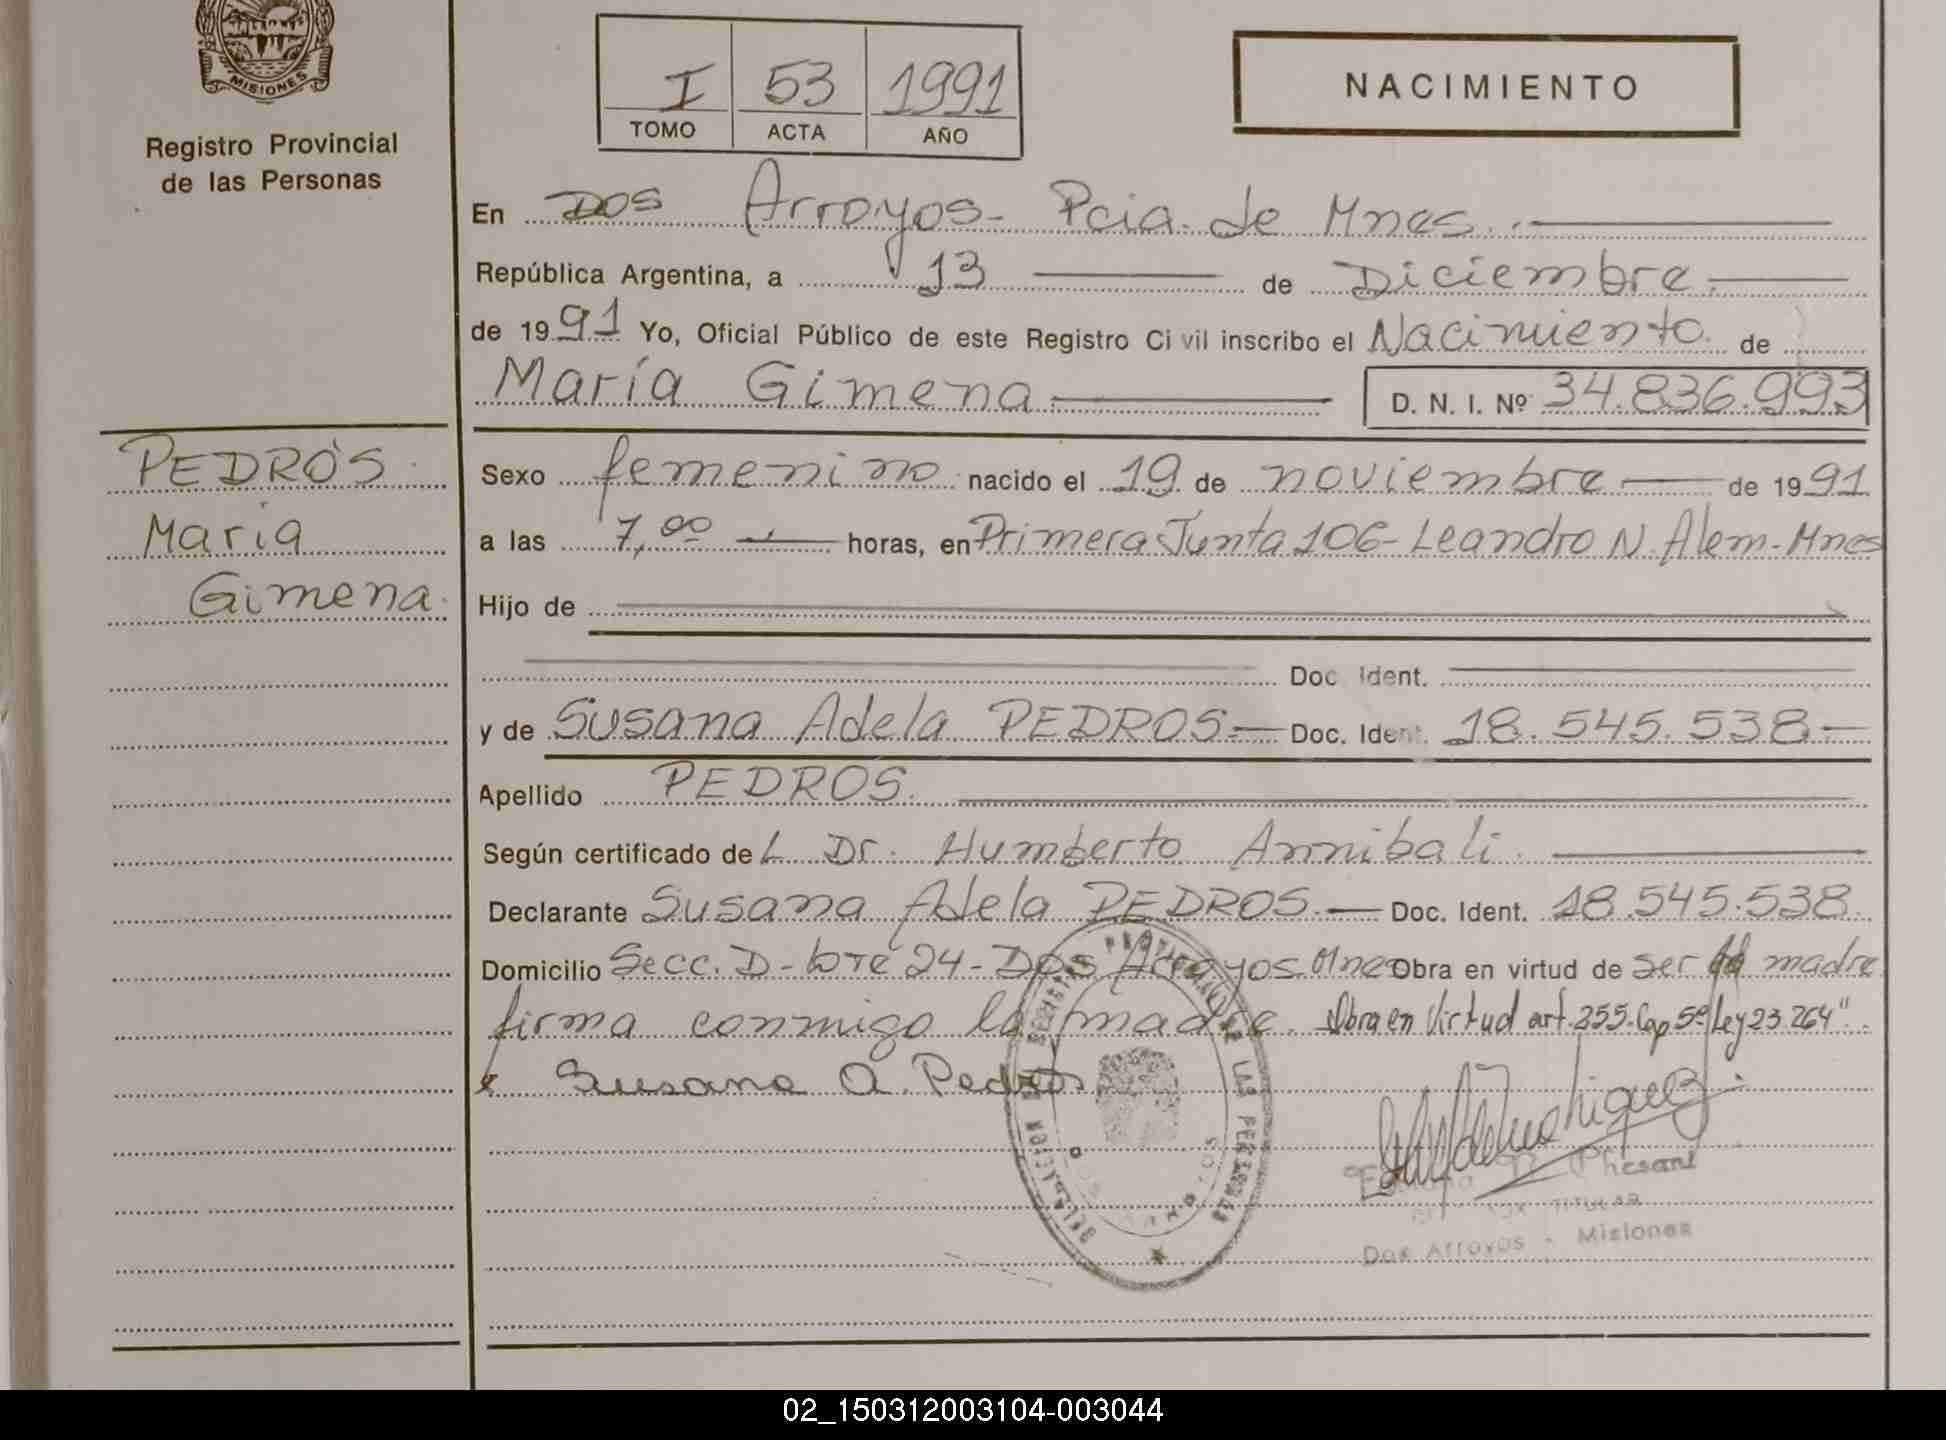 MISIONES
Registro Provincial
de las Personas
I 53 1991
TOMO ACTA AÑO
NACIMIENTO
En Dos Arroyos- Pcia. de Mnes.
República Argentina, a 13 de Diciembre
de 1991 Yo, Oficial Público de este Registro Civil inscribo el Nacimiento de
María Gimena D. N. I. Nº 34.836.993
PEDROS
Maria
Gimena.
Sexo femenino nacido el 19 de noviembre de 1991
a las 7,00 horas, en Primera Junta 106- Leandro N. Alem- Mnes
Hijo de
Doc. Ident.
y de Susana Adela PEDROS Doc. Ident. 18.545.538
Apellido PEDROS.
Según certificado del Dr. Humberto Annibali.
Declarante Susana Adela PEDROS. Doc. Ident. 18.545.538
Domicilio Secc. D- Lote 24- Dos Arroyos Mnes Obra en virtud de ser la madre
firma conmigo la madre. Obra en Virtud art. 255- Cap 5º Ley 23.264".
Susana A. Pedros
DELEGACION REGISTRO PROVINCIAL DE LAS PERSONAS
DOS ARROYOS
TITULAR
Dos Arroyos - Misiones
02_150312003104-003044